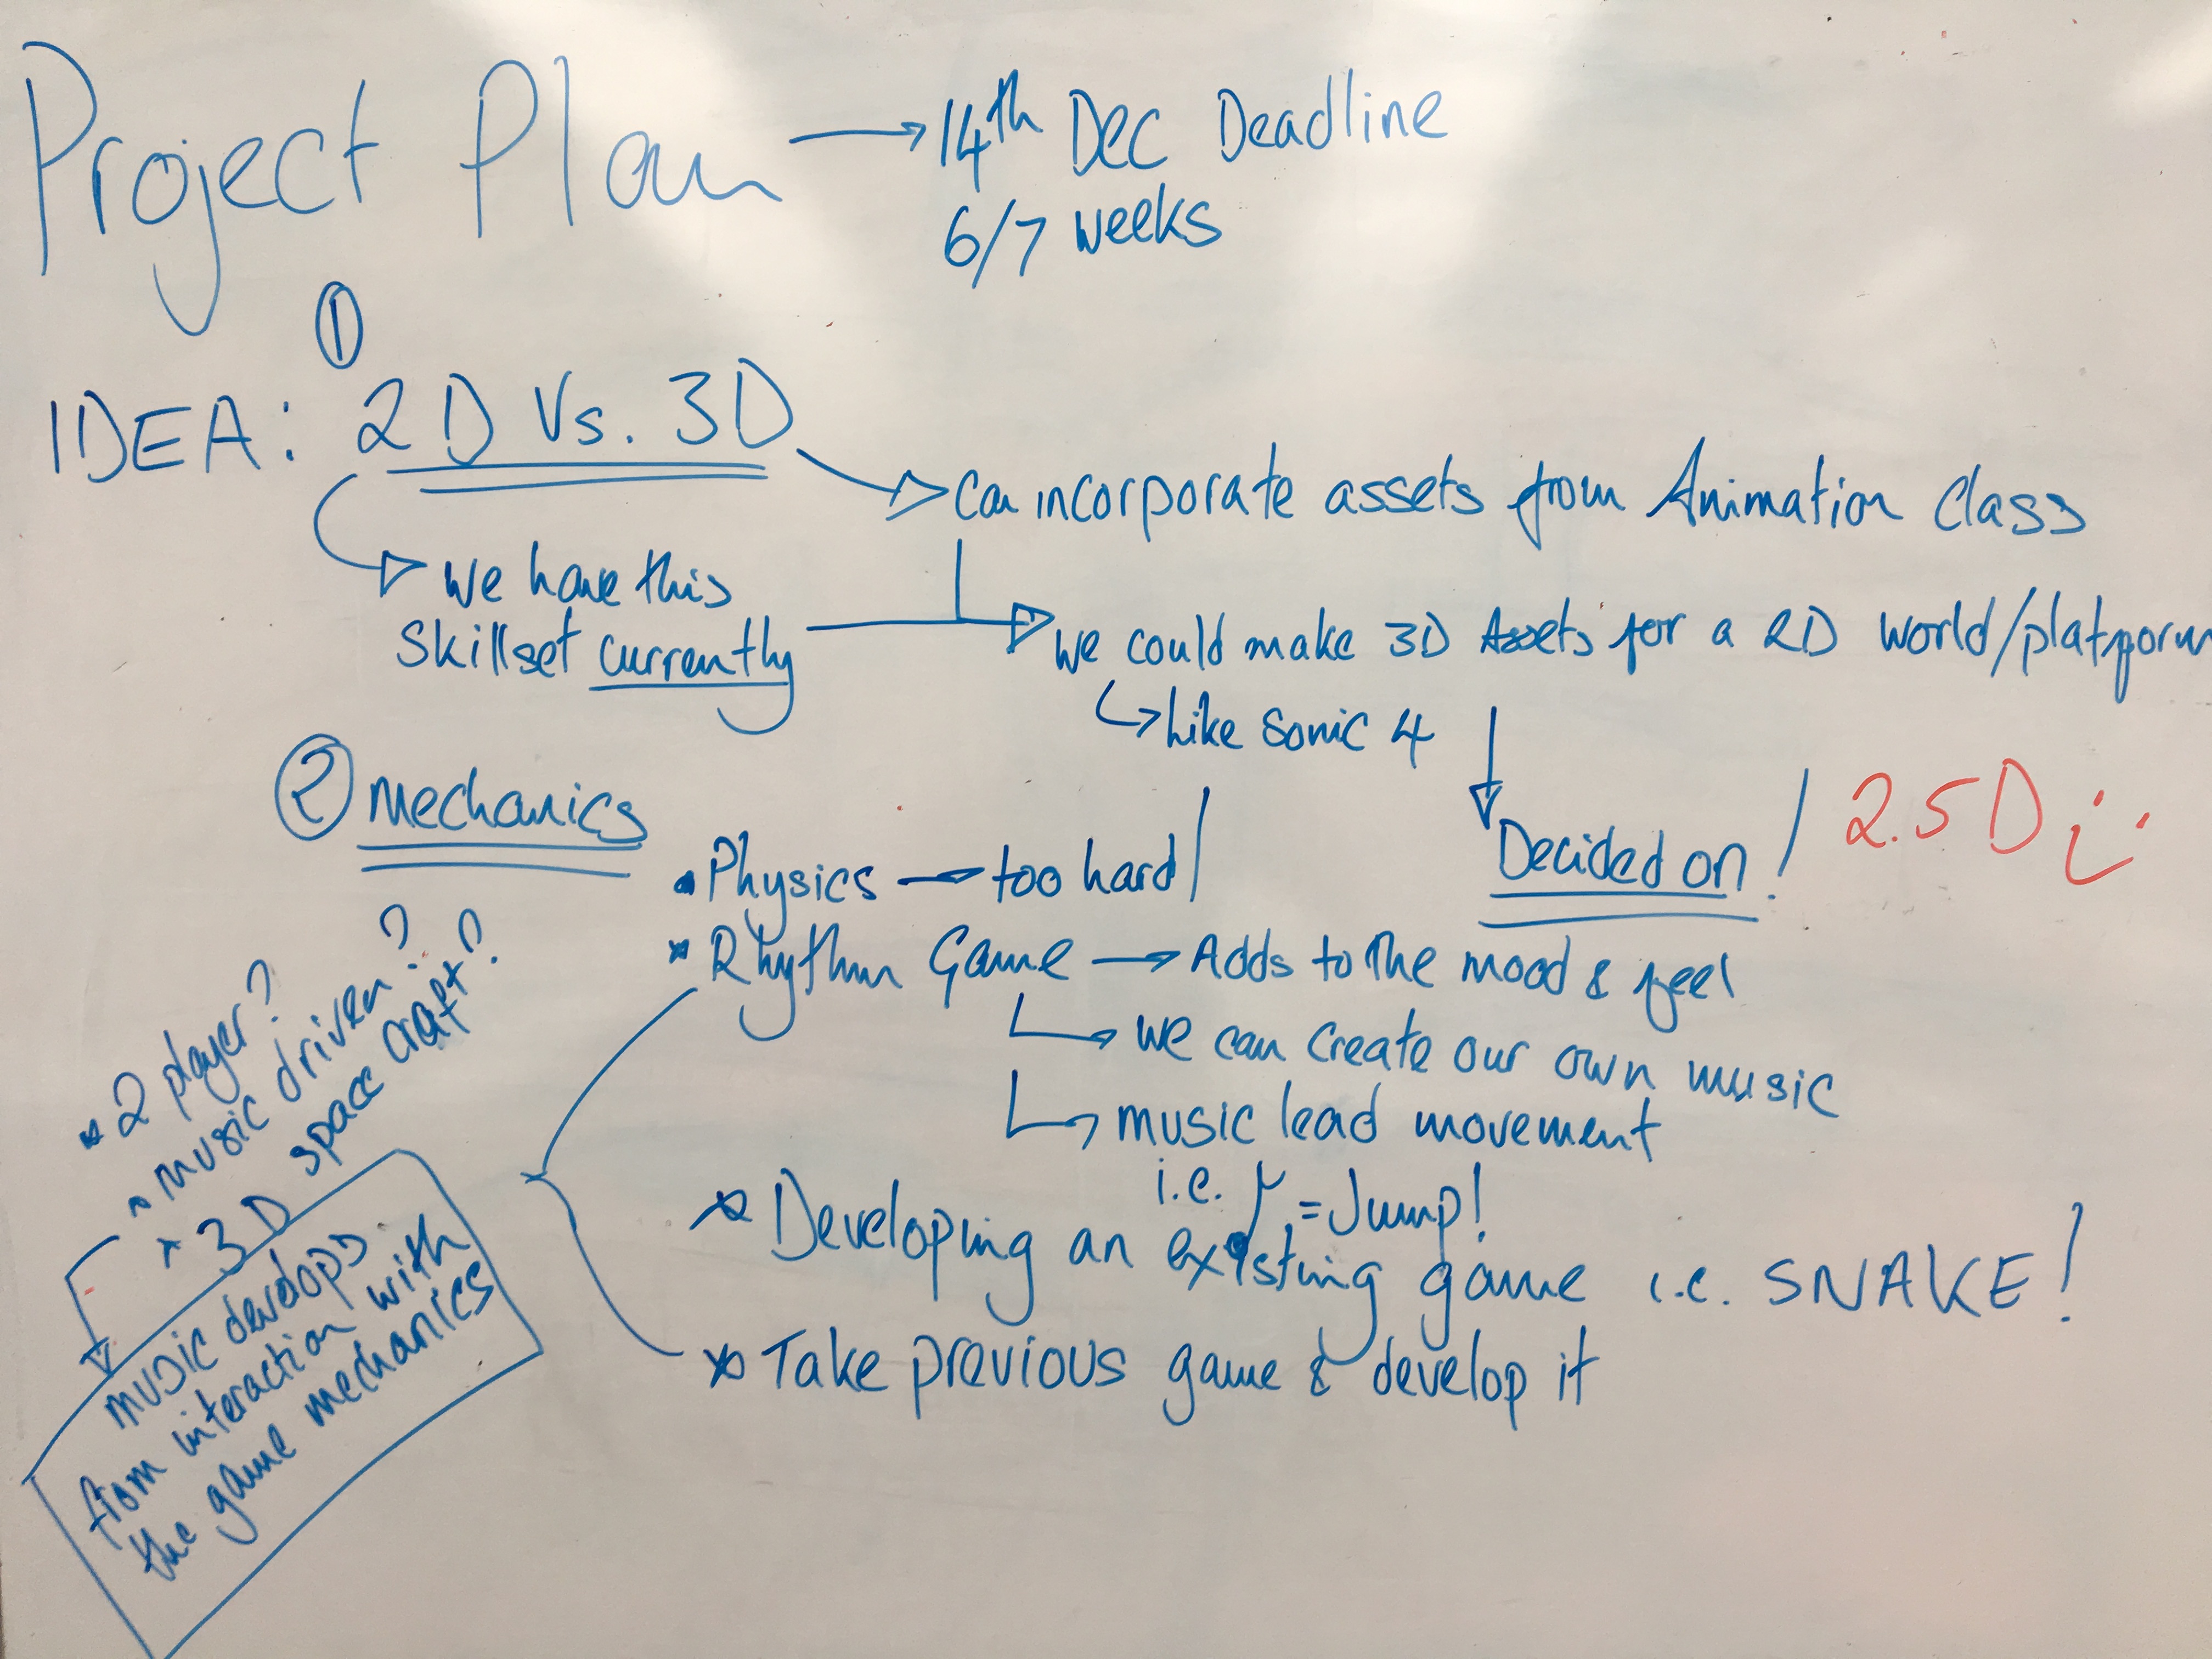 Project Plan → 14th Dec Deadline
6/7 weeks
①
IDEA: 2D Vs. 3D
→ Can incorporate assets from Animation Class
→ We have this
Skillset currently
→ We could make 3D Assets for a 2D world/platform
↳ Like Sonic 4
② Mechanics
Decided on! 2.5D :)
• Physics → too hard
* Rhythm Game → Adds to the mood & feel
↳ We can create our own music
↳ music lead movement
i.e. = Jump!
* Developing an existing game i.e. SNAKE!
* Take previous game & develop it
* 2 player?
* music driven?
* 3D space craft?
music develops
from interaction with
the game mechanics